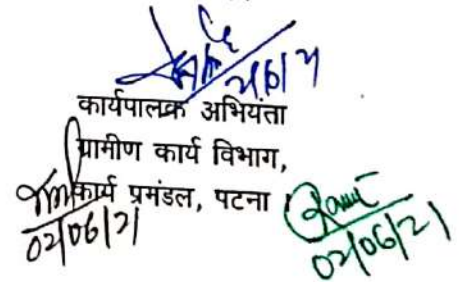 कार्यपालक अभियंता
ग्रामीण कार्य विभाग,
कार्य प्रमंडल, पटना
02/06/21
02/06/21